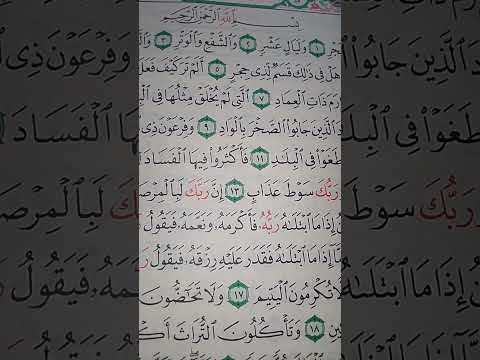 بِسْمِ ٱللَّهِ ٱلرَّحْمَٰنِ ٱلرَّحِيمِ
جْرِ ١ وَلَيَالٍ عَشْرٍ ٢ وَٱلشَّفْعِ وَٱلْوَتْرِ ٣
هَلْ فِى ذَٰلِكَ قَسَمٌ لِّذِى حِجْرٍ ٥ أَلَمْ تَرَ كَيْفَ فَعَلَ
رَمَ ذَاتِ ٱلْعِمَادِ ٧ ٱلَّتِى لَمْ يُخْلَقْ مِثْلُهَا فِى
دَ ٱلَّذِينَ جَابُوا۟ ٱلصَّخْرَ بِٱلْوَادِ ٩ وَفِرْعَوْنَ ذِى
طَغَوْا۟ فِى ٱلْبِلَٰدِ ١١ فَأَكْثَرُوا۟ فِيهَا ٱلْفَسَادَ
رَبُّكَ سَوْطَ عَذَابٍ ١٣ إِنَّ رَبَّكَ لَبِٱلْمِرْصَا
نُ إِذَا مَا ٱبْتَلَىٰهُ رَبُّهُۥ فَأَكْرَمَهُۥ وَنَعَّمَهُۥ فَيَقُولُ
آ إِذَا مَا ٱبْتَلَىٰهُ فَقَدَرَ عَلَيْهِ رِزْقَهُۥ فَيَقُولُ
لَّا تُكْرِمُونَ ٱلْيَتِيمَ ١٧ وَلَا تَحَٰٓضُّونَ
ينِ ١٨ وَتَأْكُلُونَ ٱلتُّرَاثَ أَكْ